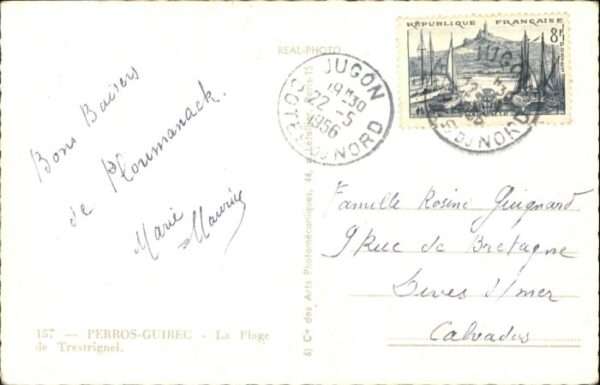 Bons Baisers
de Ploumanack.
Marie
Maurice
157. — PERROS-GUIREC - La Plage
de Trestrignel.
REAL-PHOTO
61 Cie des Arts Photomécaniques, 44,
JUGON
19H30
22 - 5
1956
COTES DU NORD
RÉPUBLIQUE FRANÇAISE
8F
JUGON
DU NORD
Famille Rosine Guignard
9 Rue de Bretagne
Dives s/mer
Calvados